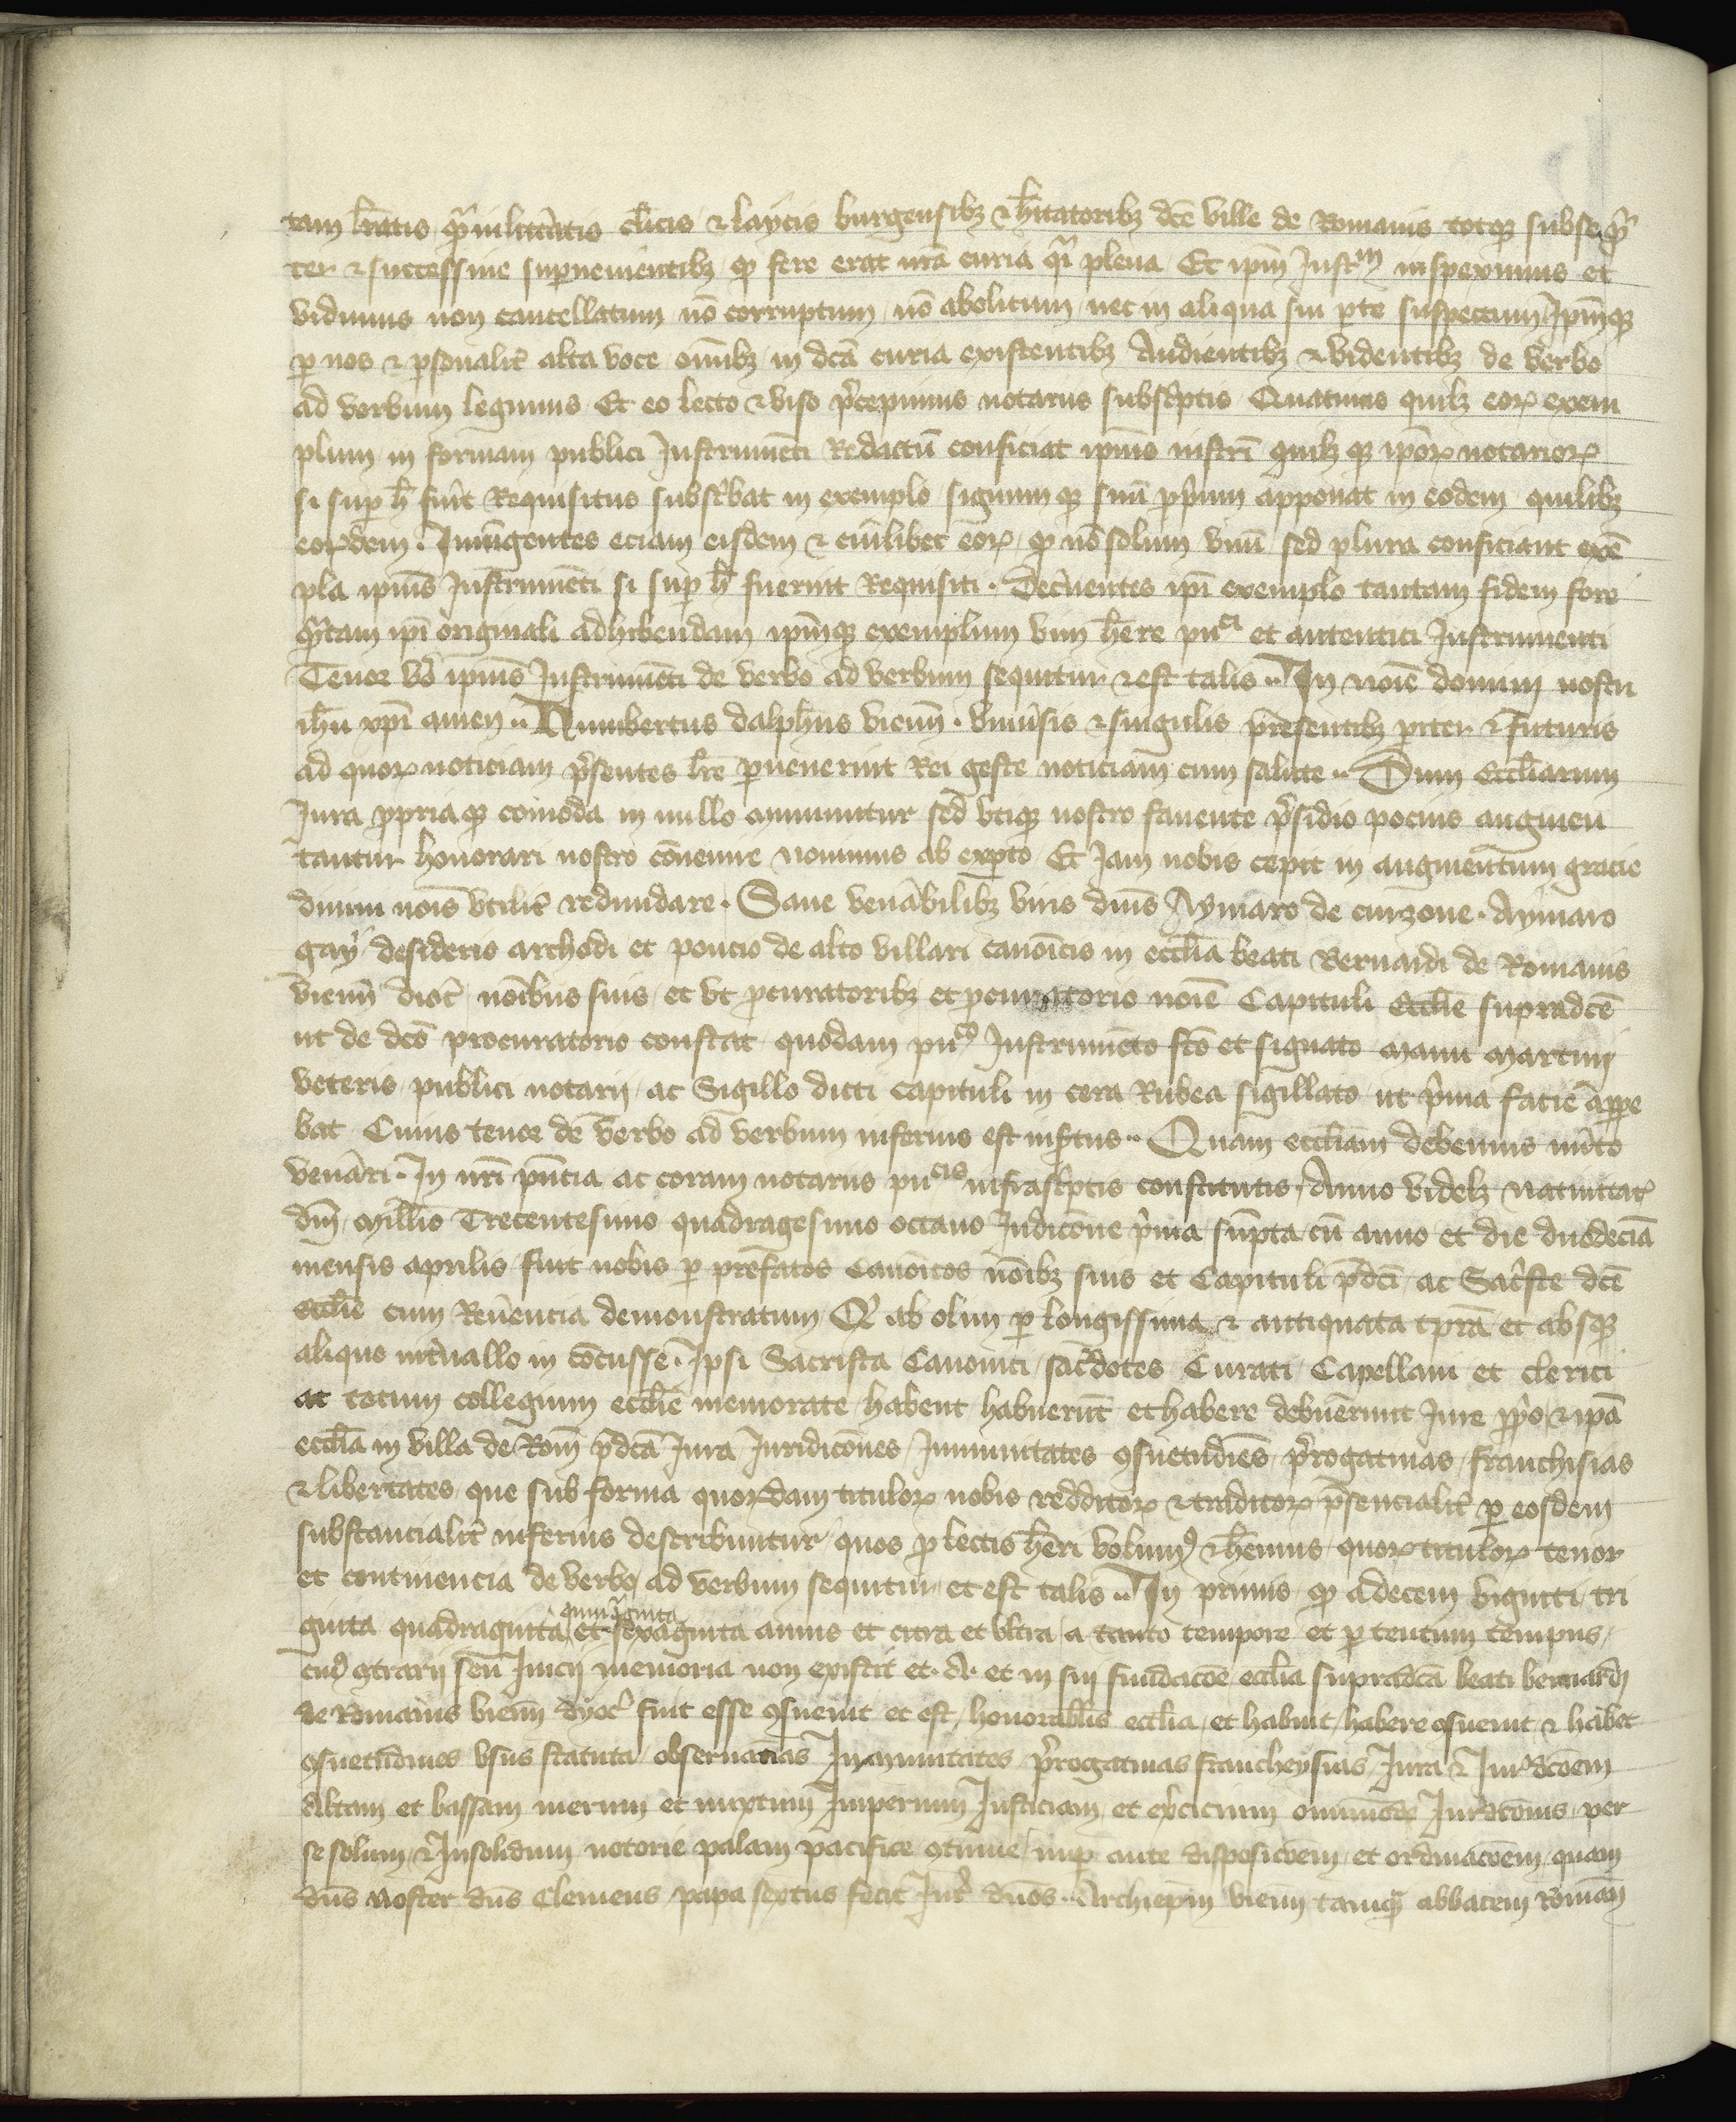 tam lr̄atis qͣm illiteratis cl̄icis & laycis burgensibȝ & hītatoribȝ dc̄e ville de Romanis totqꝫ subseqn̄
ter & successiue supuenientibȝ qꝫ fere erat nr̄a curia qͣi plena Et ipm̄ Instm̄ inspeximus et
vidimus non cancellatum nō corruptum nō abolitum nec in aliqua sui pte suspectum Ipm̄qꝫ
ꝑ nos & ꝑsonalit̄ alta voce om̄ibȝ in dc̄a curia existentibȝ Audientibȝ & videntibȝ de verbo
ad verbum legimus Et eo lecto & viso p̄cepimus notariis subsc̄ptis Quatinus quilȝ eoꝝ exem
plum in formam publici Instrumēti Redactū conficiat ipīus instr̄i quilȝ qꝫ ip̄oꝝ notarioꝝ
si suꝑ h̄ fu̅it Requisitus subsc̄bat in exemplo signum qꝫ suū ꝓp̄ium apponat in eodem quilibȝ
eoꝝdem . Iniūgentes eciam eisdem & cuilibet eoꝝ qꝫ nō solum vnū sed plura conficiant exē
pla ipīus Instrumēti si suꝑ h̄ fuerint Requisiti . Decn̄entes ip̄i exemplo tantam fidem fore
qͣtam ip̄i originali adhibendam ipm̄qꝫ exemplum vim hēre puci et autentici Instrumenti
Tenor vō ipīus Instrumēti de verbo ad verbum sequitur & est talis .. In noīe domini nostri
ihū xp̄i amen .. Humbertus dalphīus vienn̄ . vniūsis & singulis p̄resentibȝ pīter & futuris
ad quoꝝ noticiam p̄sentes lr̄e ꝑuenerint Rei geste noticiam cum salute .. Dum eccl̄iarum
Iura ꝓpriaqꝫ comoda in nullo minuuntur sed vtiqꝫ nostro fauente p̄sidio pocius augmen
tantur honorari nostro cōuenire nouimus ab expto Et Iam nobis cepit in augmentum gracie
diuini nois̄ vtilit̄ redundare . Sane ven̄abilibȝ viris dn̄is Aymaro de curzone . Aymaro
gay desiderio archodi et poncio de alto villari canoīcis in eccl̄ia beati Bernardi de Romanis
vienn̄ dioc̄ noībus suis et vt ꝓcuratoribȝ et ꝓcuratorio noīe Capituli Eccl̄ie supradcē
ut de dcō procuratorio constat quodam puco Instrumēto fcō et signato manu martini
veteris publici notarij ac Sigillo dicti Capituli in cera Rubea sigillato ut p̄ma facie appe
bat Cuius tenor de verbo ad verbum inferius est insertus .. Quam eccl̄iam debemus mīto
ven̄ari . In nr̄i pn̄tia ac coram notariis pucis infrasc̄ptis constitutis . Anno videlȝ natiuitat̄
dn̄i mill̄io Trecentesimo quadragesimo octauo Indicōne p̄ma sūpta cū anno et die duodecīa
mensis aprilis fuit nobis ꝑ prefatos Canoīcos noībȝ suis et Capituli p̄dci ac Sac̄ste dcē
Eccl̄ie cum Reūencia demonstratum Qꝫ ab olim ꝑ longissima & antiquata tp̄ra et absqꝫ
aliquo int̄uallo in cōcusse . Ipsi Sacrista Canonici sac̄dotes Curati Capellani et clerici
ac totum collegium eccl̄ie memorate habent habuerūt et habere debuerunt Iure ꝓp̄o & ip̄a
eccl̄ia in villa de Rom̄ p̄dcā Iura Iuridicōnes Immunitates ꝯsuetudīes p̄rogatiuas franchisias
& libertates que sub forma quoꝝdam tituloꝝ nobis redditoꝝ & traditoꝝ p̄sencialit̄ ꝑ eosdem
substancialit̄ inferius describuntur quos ꝓ lectis hēri volumꝰ & hēmus quoꝝ tituloꝝ tenor
et continencia de verbo ad verbum sequitur et est talis .. In primis qꝫ a decem viginti tri
ginta quadraginta quīquaginta et sexaginta annis et citra et vltra a tanto tempore et ꝑ tentum tempus
cuiꝰ ꝯtrarij seu Inicij memoria non existit et . A . et in sui fundacōe eccl̄ia supradcā beati bernardi
de Romanis vienn̄ dyoc̄ fuit esse ꝯsueuit et est honorabl̄is eccl̄ia et habuit habere ꝯsueuit & habet
ꝯsuetudines vsus statuta obseruancias Immunitates p̄rogatiuas francheysias Iura & Iur̄dcōem
Altam et bassam merum et mixtum Imperium Iusticiam et ex̄cicium omnimōde Iur̄dcōnis per
se solum & Insolidum notorie palam pacifice ꝯtinue nuꝑ ante disposicōem et ordinacōem quam
dn̄s noster dn̄s Clemens papa sextus fecit Int̄ dn̄os .. Archiepm̄ vienn̄ tamqͣ abbatem Roman̄